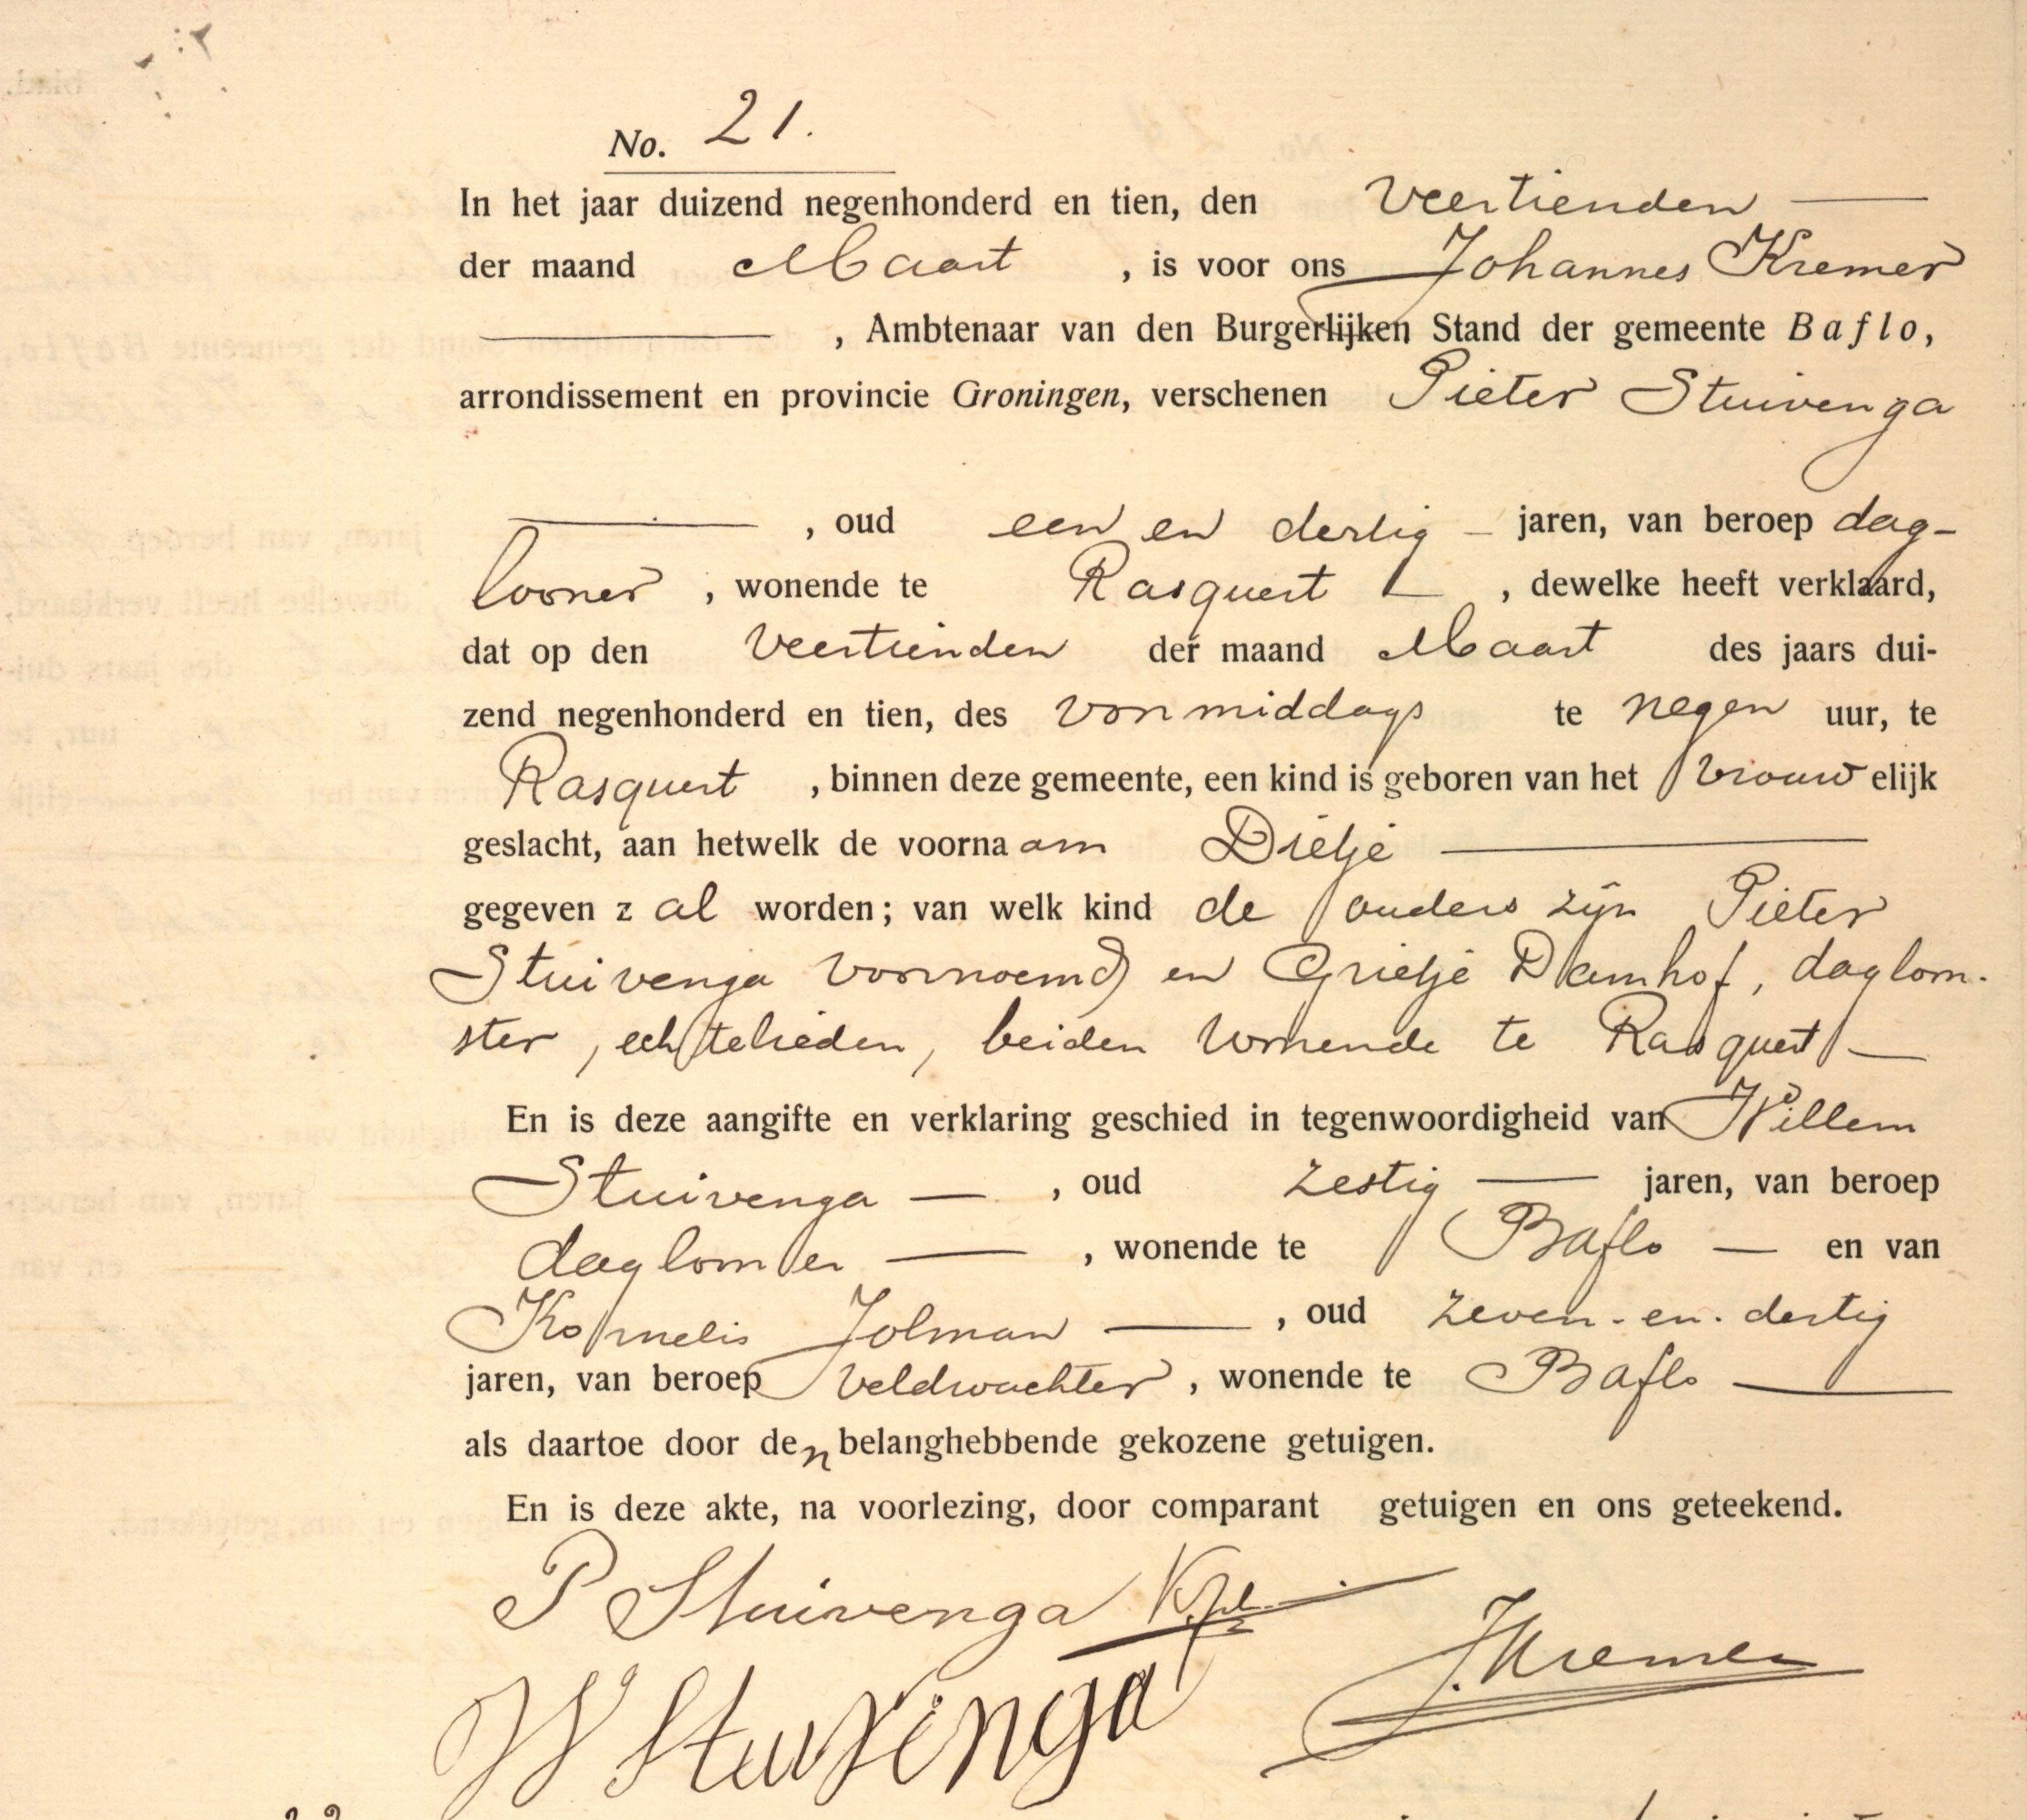 No. 21.
In het jaar duizend negenhonderd en tien, den veertienden
der maand Maart , is voor ons Johannes Kremer
, Ambtenaar van den Burgerlijken Stand der gemeente Baflo,
arrondissement en provincie Groningen, verschenen Pieter Stuivenga
, oud een en dertig jaren, van beroep dag-
looner , wonende te Rasquert , dewelke heeft verklaard,
dat op den veertienden der maand Maart des jaars dui-
zend negenhonderd en tien, des voormiddags te negen uur, te
Rasquert , binnen deze gemeente, een kind is geboren van het vrouwelijk
geslacht, aan hetwelk de voornaam Dietje
gegeven zal worden; van welk kind de ouders zijn Pieter
Stuivenga voornoemd en Grietje Damhof, dagloon-
ster, echtelieden, beiden wonende te Rasquert
En is deze aangifte en verklaring geschied in tegenwoordigheid van Willem
Stuivenga , oud zestig jaren, van beroep
daglooner , wonende te Baflo en van
Kornelis Jolman , oud zeven-en-dertig
jaren, van beroep veldwachter , wonende te Baflo
als daartoe door den belanghebbende gekozene getuigen.
En is deze akte, na voorlezing, door comparant getuigen en ons geteekend.
P Stuivenga
W Stuivenga
J. Kremer